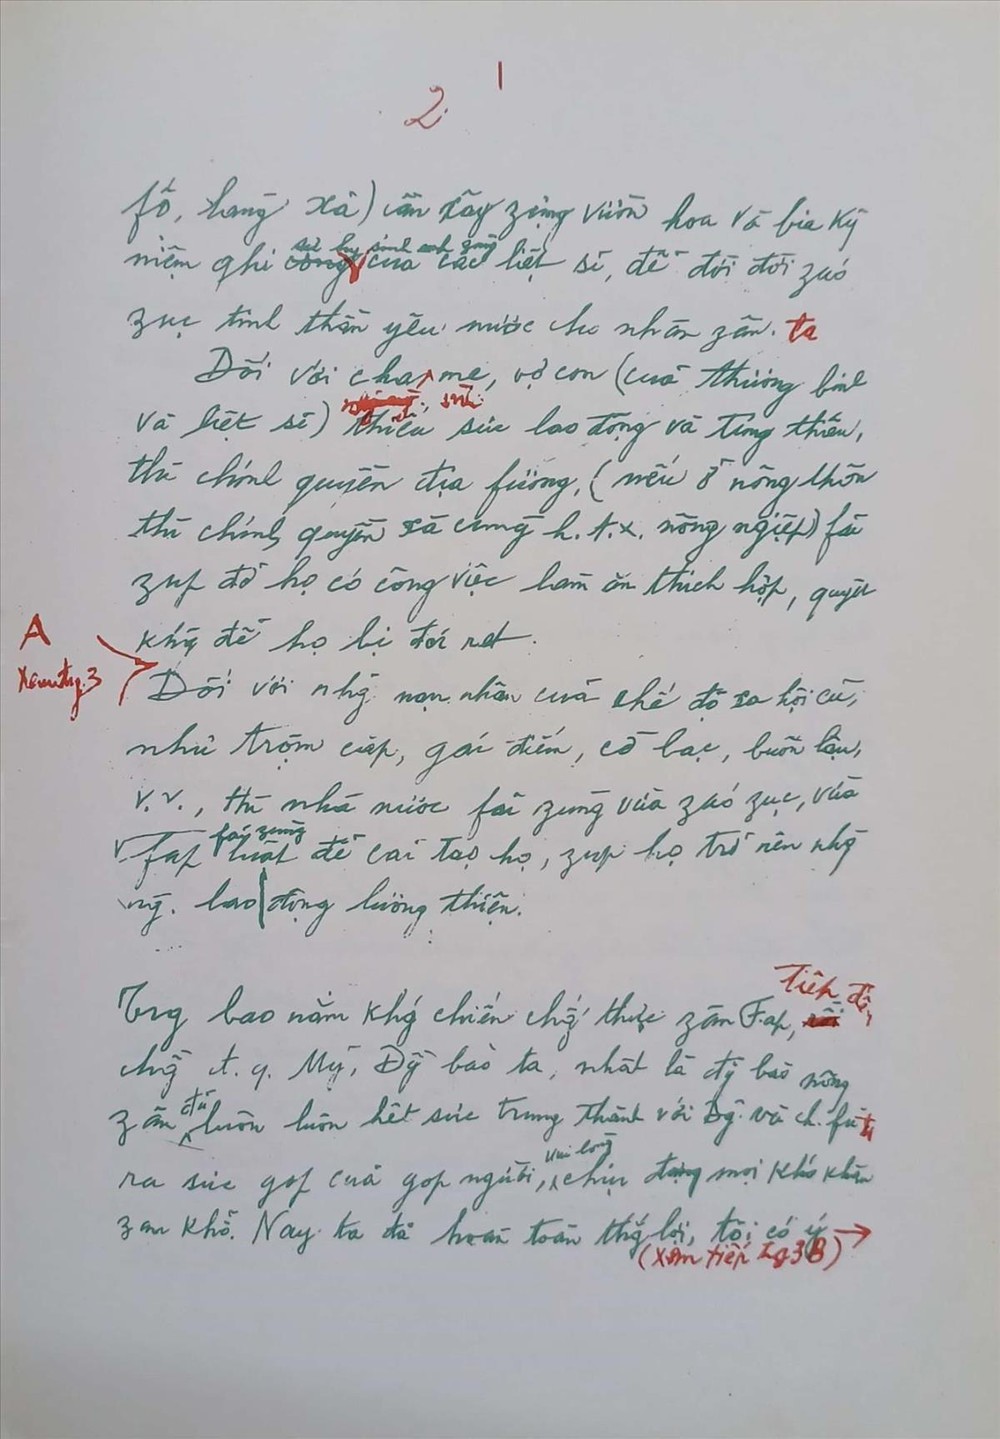 1
2.
fố, làng xã) cần xây zựng vườn hoa và bia kỷ
sự hy sinh anh zũng
niệm ghi công của các liệt sĩ, để đời đời záo
zục tinh thần yêu nước cho nhân zân. ta
Đối với cha, mẹ, vợ con (của thương binh
và liệt sĩ) thiếu sức lao động và túng thiếu,
thì chính quyền địa fương, (nếu ở nông thôn
thì chính quyền xã cùng h.t.x. nông ngiệp) fải
zúp đỡ họ có công việc làm ăn thích hợp, quyết
A
khg để họ bị đói rét.
Xem trg. 3
Đối với nhg nạn nhân của chế độ xã hội cũ,
như trộm cắp, gái điếm, cờ bạc, buôn lậu,
v.v., thì nhà nước fải zùng vừa záo zục, vừa
fải zùng
fáp luật để cải tạo họ, zúp họ trở nên nhg
ng. lao động lương thiện.
Tiếp đến
Trg bao năm khg chiến chg thực zân Fáp,
chg đ.q. Mỹ, Đg bào ta, nhất là đg bào nông
đã
zân luôn luôn hết sức trung thành với Đg và ch. fủ ta
vui lòng
ra sức góp của góp người, chịu đựng mọi khó khăn
zan khổ. Nay ta đã hoàn toàn thg lợi, tôi có ý
(Xem tiếp Tg 3 B)